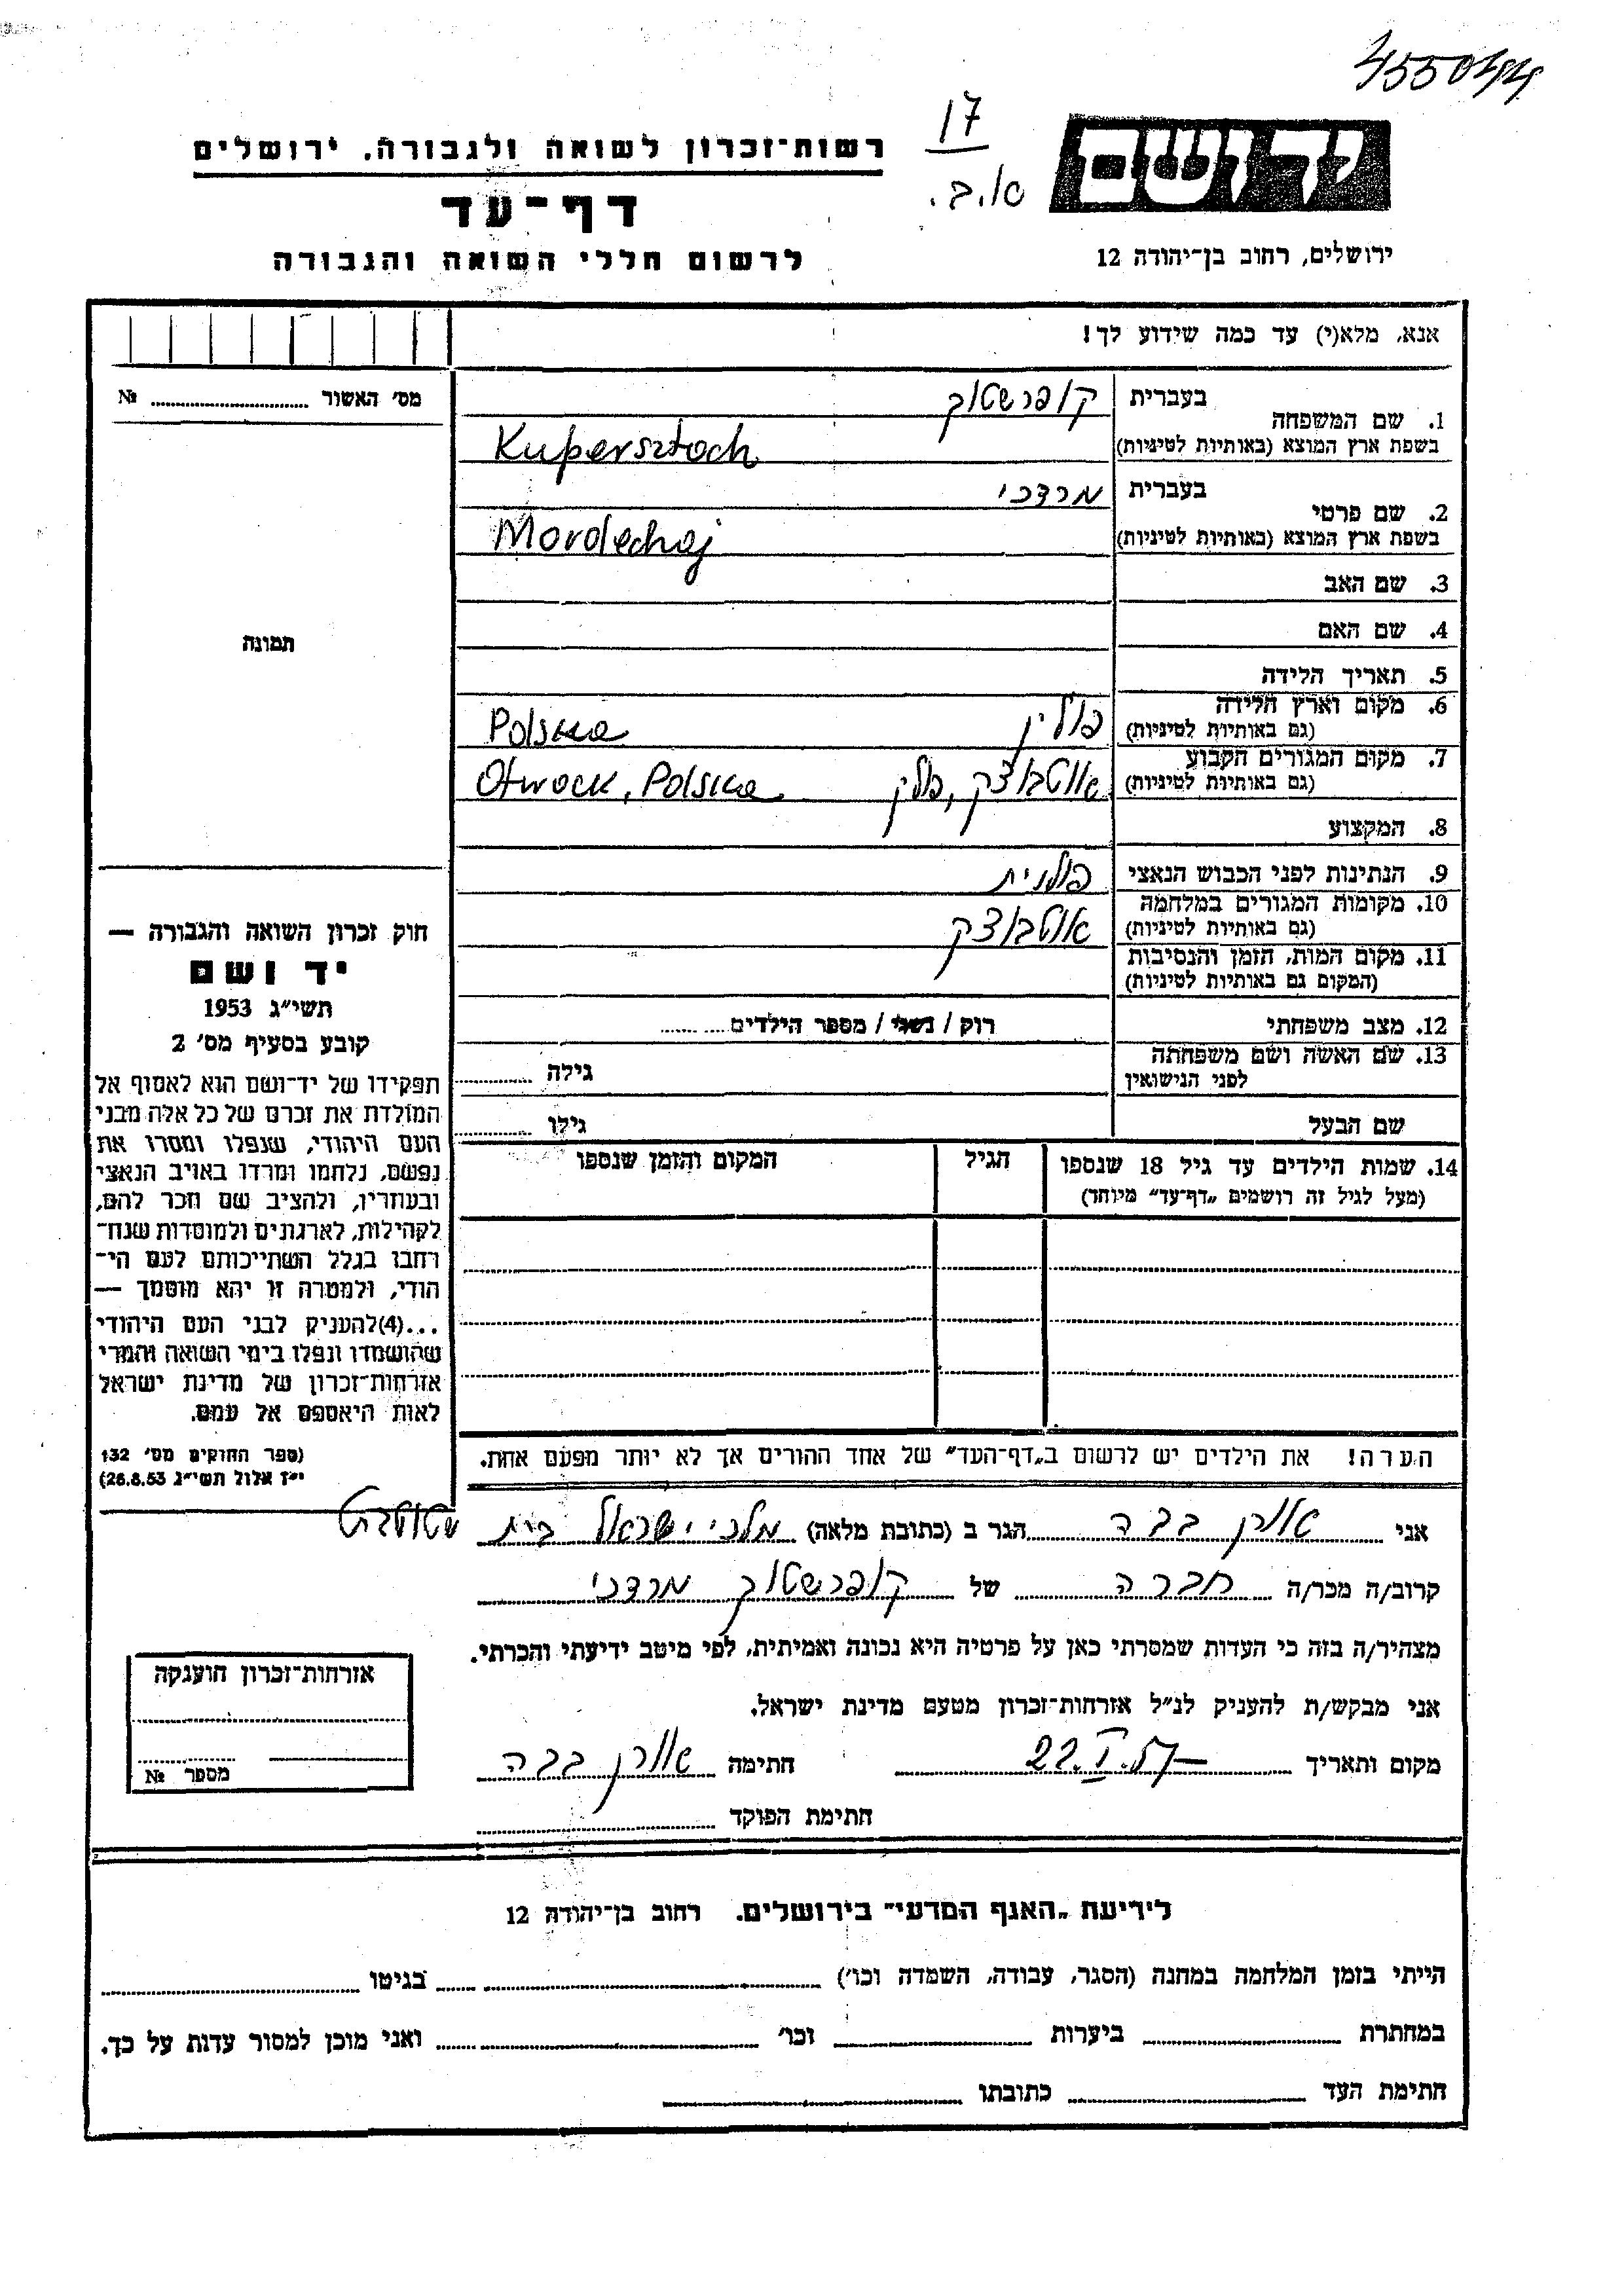 455044
17
א.ב.
יד ושם
ירושלים, רחוב בן־יהודה 12
רשות־זכרון לשואה ולגבורה, ירושלים
דף־עד
לרשום חללי השואה והגבורה
אנא, מלא(י) עד כמה שידוע לך!
1. שם המשפחה בעברית קופרשטוך
בשפת ארץ המוצא (באותיות לטיניות) Kupersztoch
2. שם פרטי בעברית מרדכי
בשפת ארץ המוצא (באותיות לטיניות) Mordechaj
3. שם האב
4. שם האם
5. תאריך הלידה
6. מקום וארץ הלידה
(גם באותיות לטיניות) פולין Polska
7. מקום המגורים הקבוע
(גם באותיות לטיניות) אוטבוצק, פולין Otwock, Polska
8. המקצוע
9. הנתינות לפני הכבוש הנאצי פולנית
10. מקומות המגורים במלחמה
(גם באותיות לטיניות) אוטבוצק
11. מקום המות, הזמן והנסיבות
(המקום גם באותיות לטיניות)
12. מצב משפחתי רוק / נשוי / מספר הילדים
13. שם האשה ושם משפחתה
לפני הנישואין גילה
שם הבעל גילו
14. שמות הילדים עד גיל 18 שנספו הגיל המקום והזמן שנספו
(מעל לגיל זה רושמים „דף־עד״ מיוחד)
הערה! את הילדים יש לרשום ב„דף־העד״ של אחד ההורים אך לא יותר מפעם אחת.
מס׳ האשור №
תמונה
חוק זכרון השואה והגבורה —
יד ושם
תשי״ג 1953
קובע בסעיף מס׳ 2
תפקידו של יד־ושם הוא לאסוף אל
המולדת את זכרם של כל אלה מבני
העם היהודי, שנפלו ומסרו את
נפשם, נלחמו ומרדו באויב הנאצי
ובעוזריו, ולהציב שם וזכר להם,
לקהילות, לארגונים ולמוסדות שנח־
רבו בגלל השתייכותם לעם הי־
הודי, ולמטרה זו יהא מוסמך —
...(4)להעניק לבני העם היהודי
שהושמדו ונפלו בימי השואה והמרי
אזרחות־זכרון של מדינת ישראל
לאות היאספם אל עמם.
(ספר החוקים מס׳ 132
י״ז אלול תשי״ג 26.8.53)
אני אורן בבה הגר ב (כתובת מלאה) מלכי ישראל בית
קרוב/ה מכר/ה חברה של קופרשטוך מרדכי
מצהיר/ה בזה כי העדות שמסרתי כאן על פרטיה היא נכונה ואמיתית, לפי מיטב ידיעתי והכרתי.
אני מבקש/ת להעניק לנ״ל אזרחות־זכרון מטעם מדינת ישראל.
מקום ותאריך 22.I.57 חתימה אורן בבה
חתימת הפוקד
אזרחות־זכרון הוענקה
מספר №
לידיעת „האגף המדעי״ בירושלים. רחוב בן־יהודה 12
הייתי בזמן המלחמה במחנה (הסגר, עבודה, השמדה וכו׳) בגיטו
במחתרת ביערות וכו׳ ואני מוכן למסור עדות על כך.
חתימת העד כתובתו